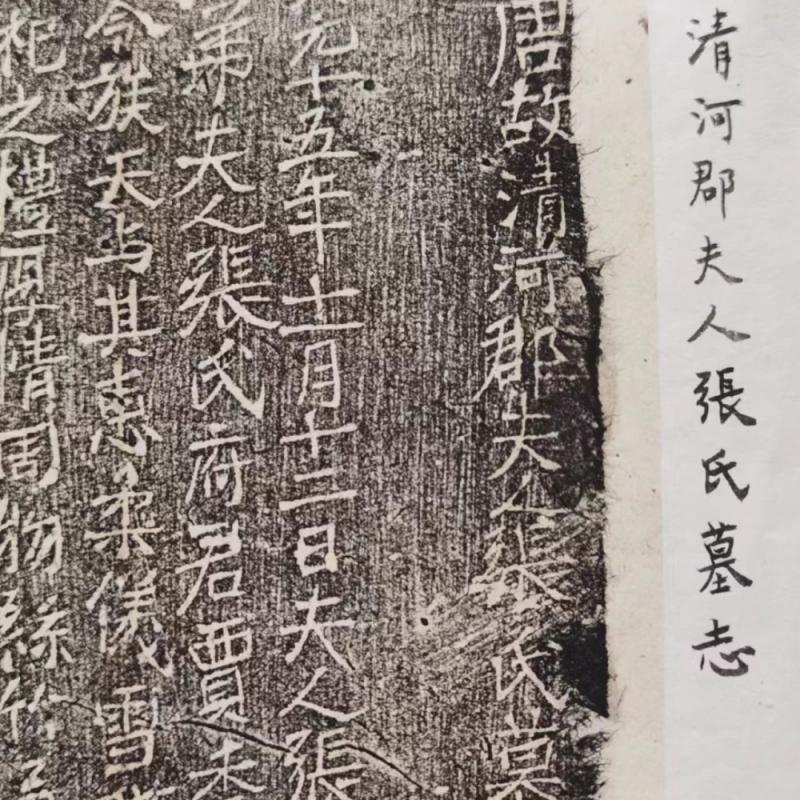 清河郡夫人張氏墓志
唐故清河郡夫人張氏墓
元十五年十二月十三日夫人張
弟夫人張氏府君賈夫
令族天与其惠柔儀雪
祀之禮享清周物絲竹